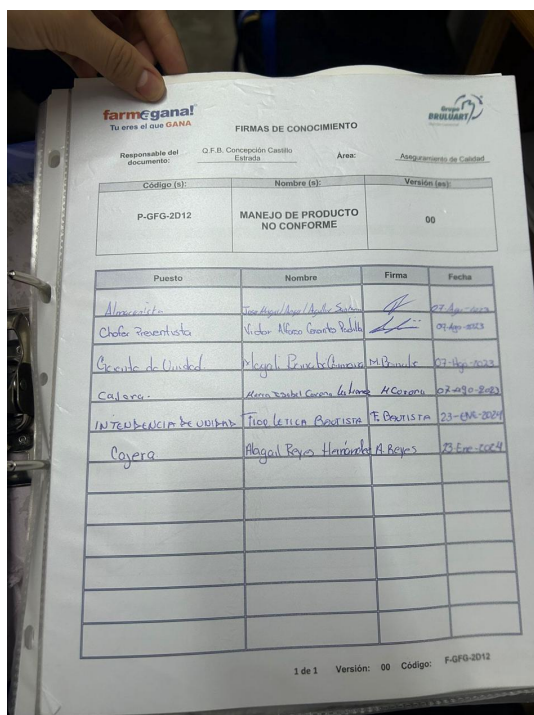 farmagana!
Tu eres el que GANA
Grupo
BRULUART
FIRMAS DE CONOCIMIENTO
Responsable del documento: Q.F.B. Concepción Castillo Estrada Área: Aseguramiento de Calidad
Código (s): Nombre (s): Versión (es):
P-GFG-2D12 MANEJO DE PRODUCTO NO CONFORME 00
Puesto Nombre Firma Fecha
Almacenista 07-Ago-2023
Chofer Preventista Victor Alfonso 07-Ago-2023
Gerente de Unidad Magali 07-Ago-2023
Cajera. Maria Isabel Corona H Corona 07-ago-2023
INTENDENCIA DE UNIDAD LETICIA BAUTISTA BAUTISTA 23-ENE-2024
Cajera Abagail Reyes Hernández A. Reyes 23-Ene-2024
1 de 1 Versión: 00 Código: F-GFG-2D12